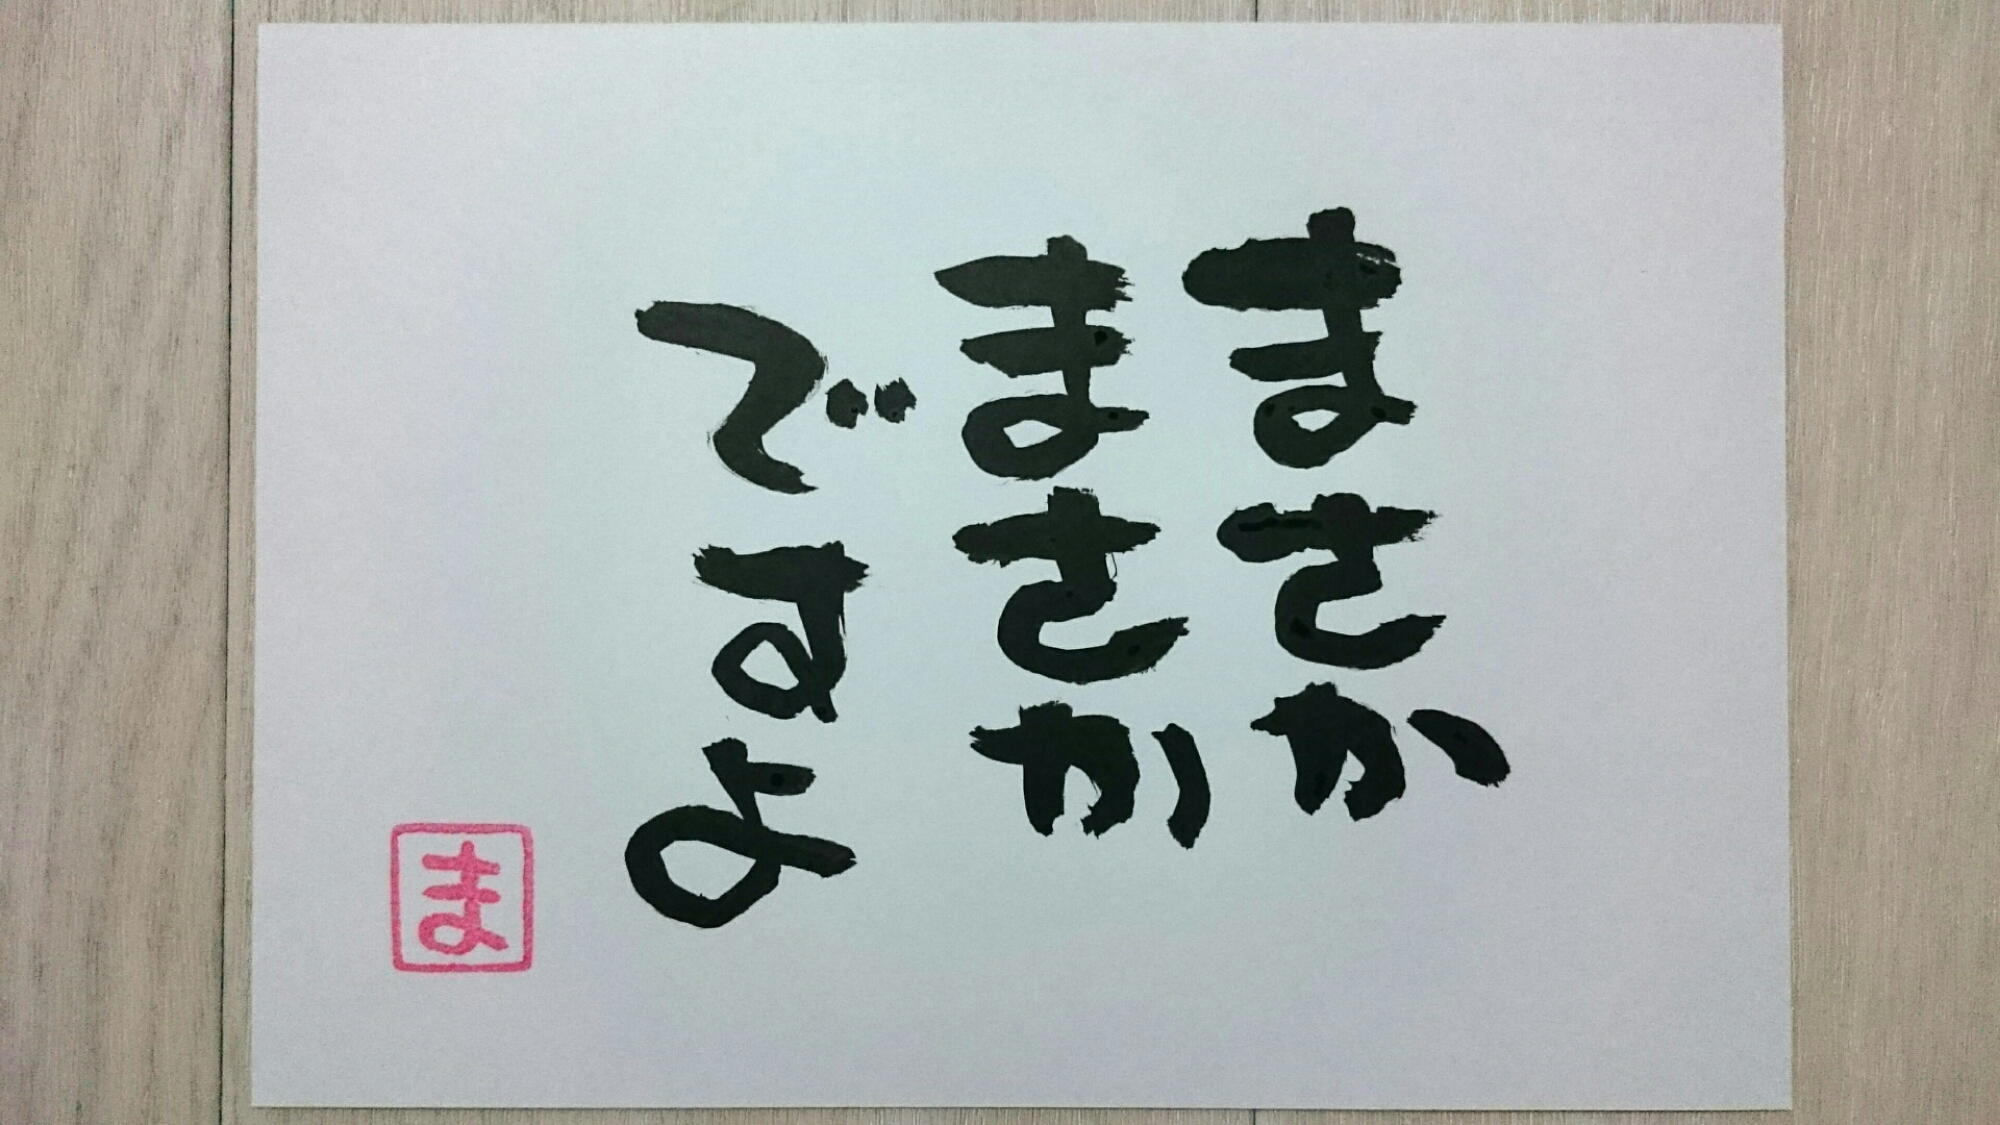 まさか
まさか
ですよ
ま